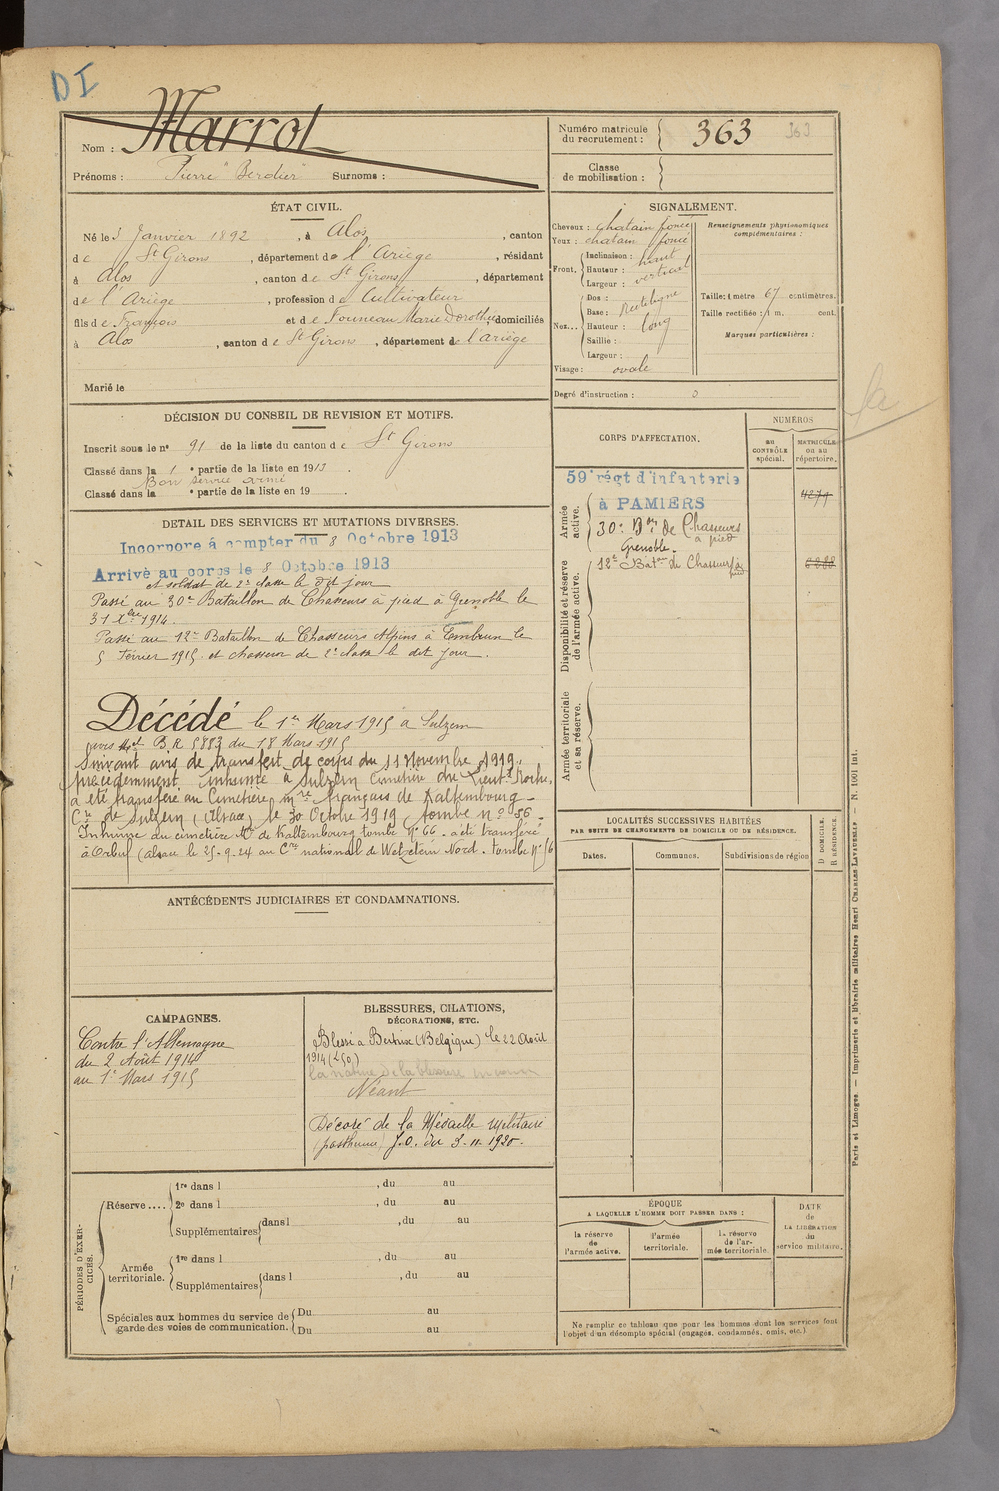 DI
Nom : Marrot
Prénoms : Pierre "Berdier" Surnoms :
Numéro matricule du recrutement : 363 363
Classe de mobilisation :
ÉTAT CIVIL.
Né le 3 Janvier 1892, à Alos, canton
de St Girons, département de l'Ariège, résidant
à Alos, canton de St Girons, département
de l'Ariège, profession de Cultivateur
fils de François et de Founeau Marie Dorothée, domiciliés
à Alos, canton de St Girons, département de l'ariège
Marié le
SIGNALEMENT.
Cheveux : chatain foncé
Yeux : chatain foncé
Front, Inclinaison : haut
Hauteur : vertical
Largeur :
Nez... Dos : Rectiligne
Base :
Hauteur : long
Saillie :
Largeur :
Visage : ovale
Renseignements physionomiques complémentaires :
Taille : 1 mètre 67 centimètres.
Taille rectifiée : 1 m. cent.
Marques particulières :
Degré d'instruction : 3
DÉCISION DU CONSEIL DE REVISION ET MOTIFS.
Inscrit sous le n° 91 de la liste du canton de St Girons
Classé dans la 1e partie de la liste en 1913.
Bon service armé
Classé dans la e partie de la liste en 19 .
DETAIL DES SERVICES ET MUTATIONS DIVERSES.
Incorporé à compter du 8 Octobre 1913
Arrivé au corps le 8 Octobre 1913
et soldat de 2e classe le dit jour
Passé au 30e Bataillon de Chasseurs à pied à Grenoble le
31 Xbre 1914.
Passé au 12e Bataillon de Chasseurs Alpins à Embrun le
5 Février 1915 et chasseur de 2e classe le dit jour.
Décédé le 1er Mars 1915 à Sulzern
avis Mel B.R 5883 du 18 Mars 1915
Suivant avis de transfert de corps du 11 Novembre 1919.
précédemment inhumé à Sulzern Cimetière du Lieutt Roche,
a été transféré au Cimetière mre français de Kaltembourg -
Cne de Sulzern (Alsace) le 30 Octobre 1919, tombe n° 56.
Inhumé du cimetière Mre de Kaltembourg tombe N° 66. a été transféré
à Orbey (Alsace le 25-9-24 au Cre national de Wetzstein Nord. tombe N° 56
CORPS D'AFFECTATION.
NUMÉROS
au CONTRÔLE spécial.
MATRICULE ou au répertoire.
Armée active.
59e régt d'infanterie
à PAMIERS
4279
30e Bon de Chasseurs
à pied
Grenoble.
Disponibilité et réserve de l'armée active.
12e Baton de Chasseurs à
pied
Armée territoriale et sa réserve.
LOCALITÉS SUCCESSIVES HABITÉES
PAR SUITE DE CHANGEMENTS DE DOMICILE OU DE RÉSIDENCE.
Dates.
Communes.
Subdivisions de région
D DOMICILE.
R RÉSIDENCE.
ANTÉCÉDENTS JUDICIAIRES ET CONDAMNATIONS.
CAMPAGNES.
Contre l'Allemagne
du 2 Août 1914
au 1er Mars 1915
BLESSURES, CITATIONS,
DÉCORATIONS, ETC.
Blessé à Bertrix (Belgique) le 22 Août
1914
la nature de la blessure inconnue
Néant
Décoré de la Médaille Militaire
(posthume) J.O. du 3-11-1920.
PÉRIODES D'EXERCICES.
Réserve.... 1re dans l , du au
2e dans l , du au
Supplémentaires dans l , du au
Armée territoriale. 1re dans l , du au
Supplémentaires dans l , du au
Spéciales aux hommes du service de garde des voies de communication. Du au
Du au
ÉPOQUE
A LAQUELLE L'HOMME DOIT PASSER DANS :
la réserve de l'armée active.
l'armée territoriale.
la réserve de l'armée territoriale.
DATE de LA LIBÉRATION du service militaire.
Ne remplir ce tableau que pour les hommes dont les services font
l'objet d'un décompte spécial (engagés, condamnés, omis, etc.)
Paris et Limoges. — Imprimerie et librairie militaires Henri CHARLES-LAVAUZELLE. — N. 1001 Int.